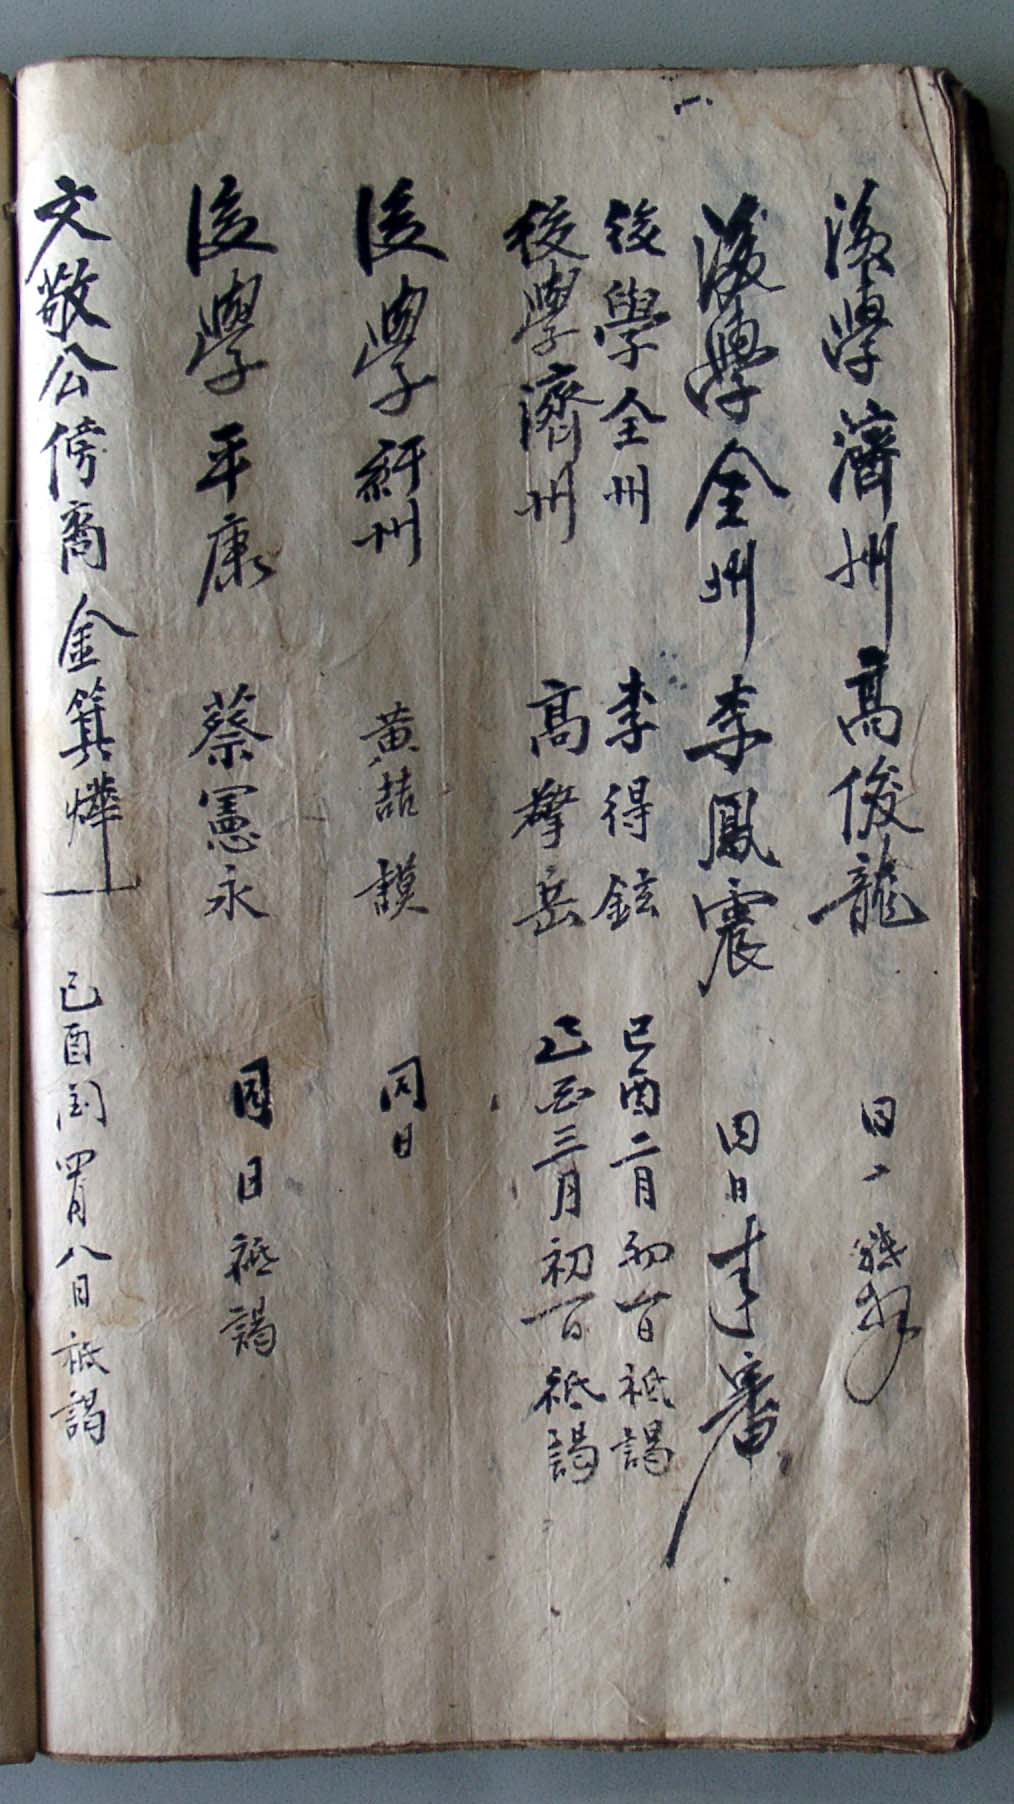 後學濟州 高俊龍 日
後學全州 李鳳震 同日 奉審
後學全州 李得鉉 己酉二月初一日祗謁
後學濟州 高擎岳 己酉三月初一日祗謁
後學 州 黃喆謨 同日
後學平康 蔡憲永 同日祗謁
文敬公傍裔 金箕燁 己酉閏四月八日祗謁